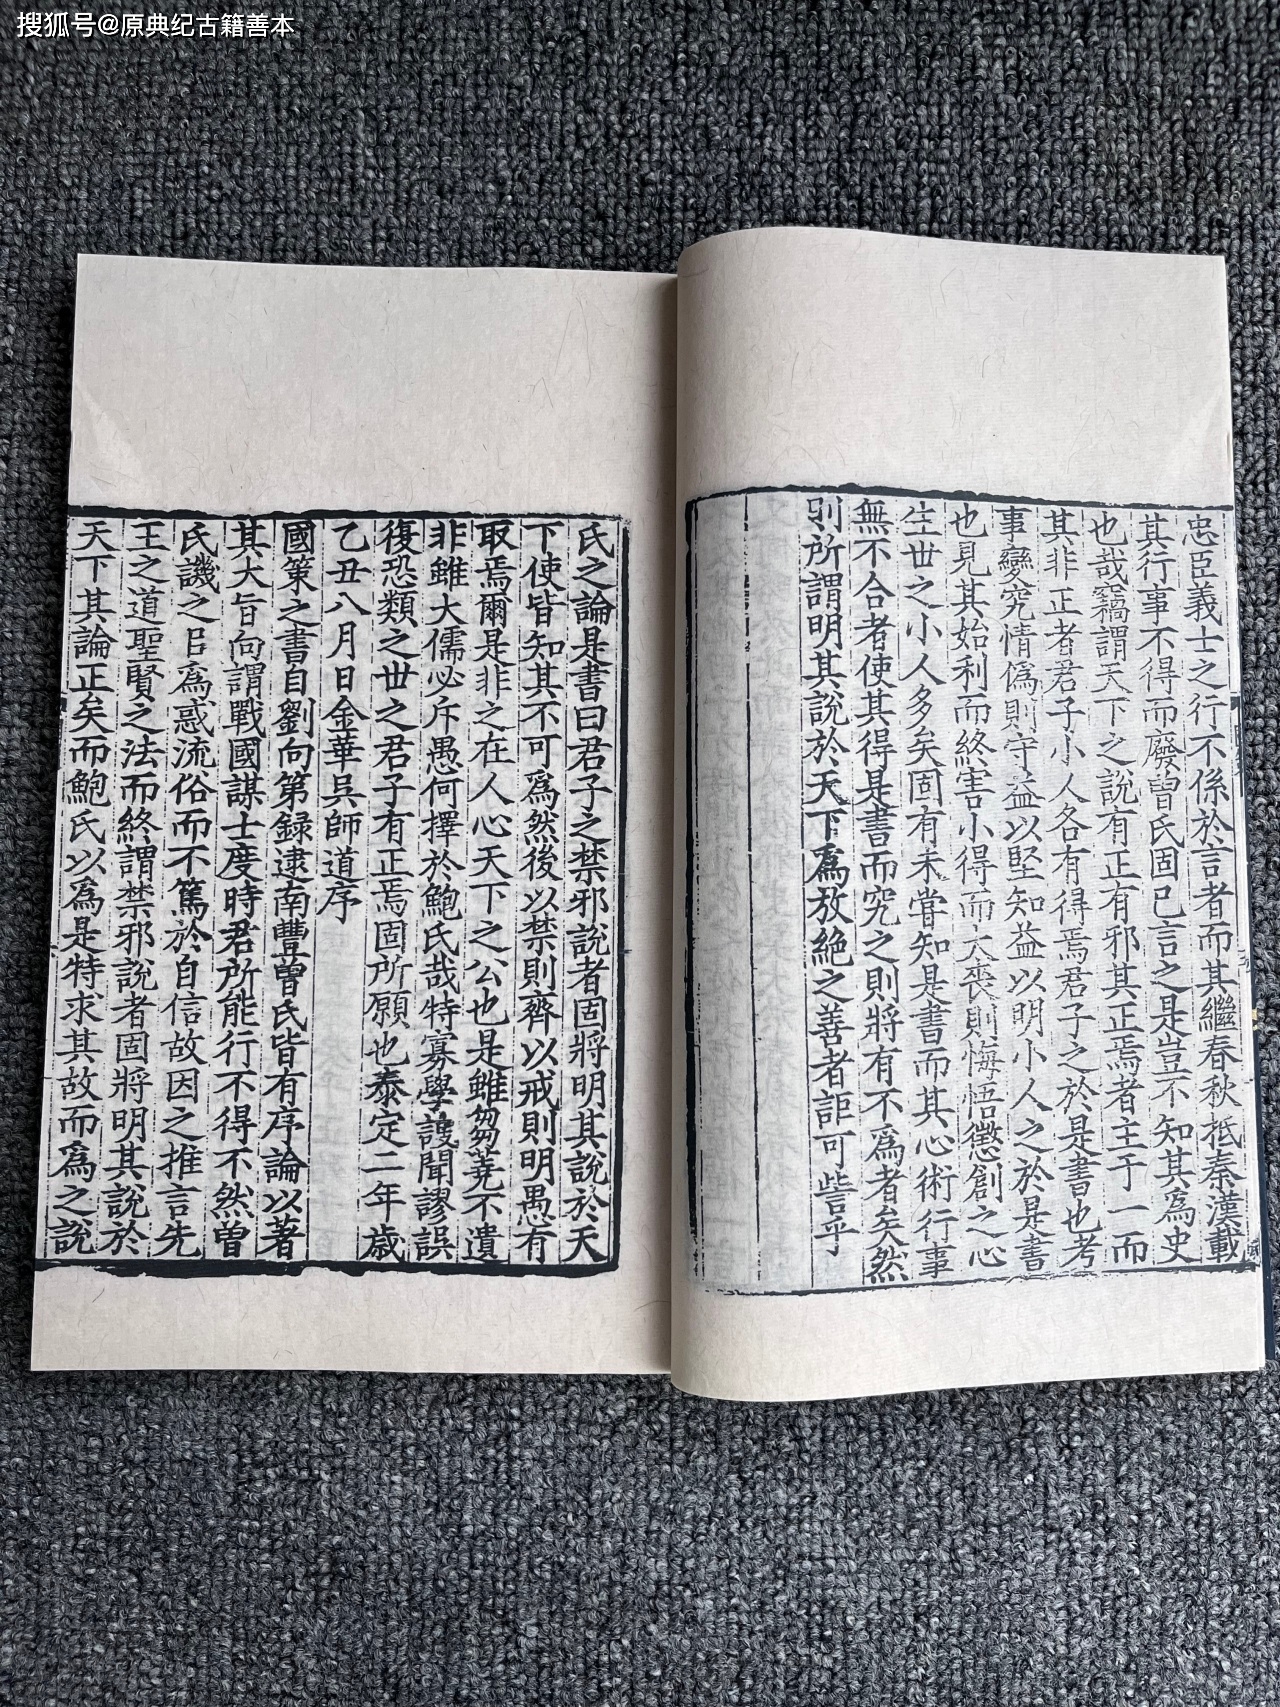 搜狐号@原典纪古籍善本
忠臣義士之行不係於言者而其繼春秋抵秦漢載
其行事不得而廢曾氏固已言之是豈不知其爲史
也哉竊謂天下之說有正有邪其正焉者主于一而
其非正者君子小人各有得焉君子之於是書也考
事變究情僞則守益以堅知益以明小人之於是書
也見其始利而終害小得而大喪則悔悟懲創之心
生世之小人多矣固有未甞知是書而其心術行事
無不合者使其得是書而究之則將有不爲者矣然
則所謂明其說於天下爲放絶之善者詎可訾乎
氏之論是書曰君子之禁邪說者固將明其說於天
下使皆知其不可爲然後以禁則齊以戒則明愚有
取焉爾是非之在人心天下之公也是雖芻蕘不遺
非雖大儒必斥愚何擇於鮑氏哉特寡學謏聞謬誤
復恐類之世之君子有正焉固所願也泰定二年歳
乙丑八月日金華吳師道序
國策之書自劉向第録逮南豐曾氏皆有序論以著
其大旨向謂戰國謀士度時君所能行不得不然曾
氏譏之以爲惑流俗而不篤於自信故因之推言先
王之道聖賢之法而終謂禁邪說者固將明其說於
天下其論正矣而鮑氏以爲是特求其故而爲之說